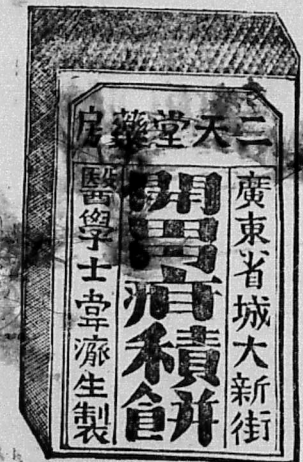 二天堂藥房
廣東省城大新街
開胃疳積餅
醫學士韋濟生製